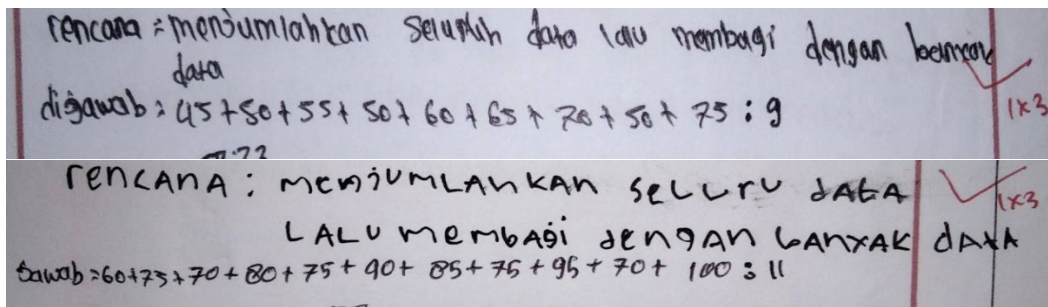 rencana : menjumlahkan seluruh data lalu membagi dengan banyak
data
dijawab : 45+50+55+50+60+65+70+50+75 : 9
1x3
rencANA : menjumLAhkAn seLuru dAtA
1x3
LALU membAgi dengAn bAnyAk dAtA
Jawab = 60+75+70+80+75+90+85+75+95+70+100 : 11